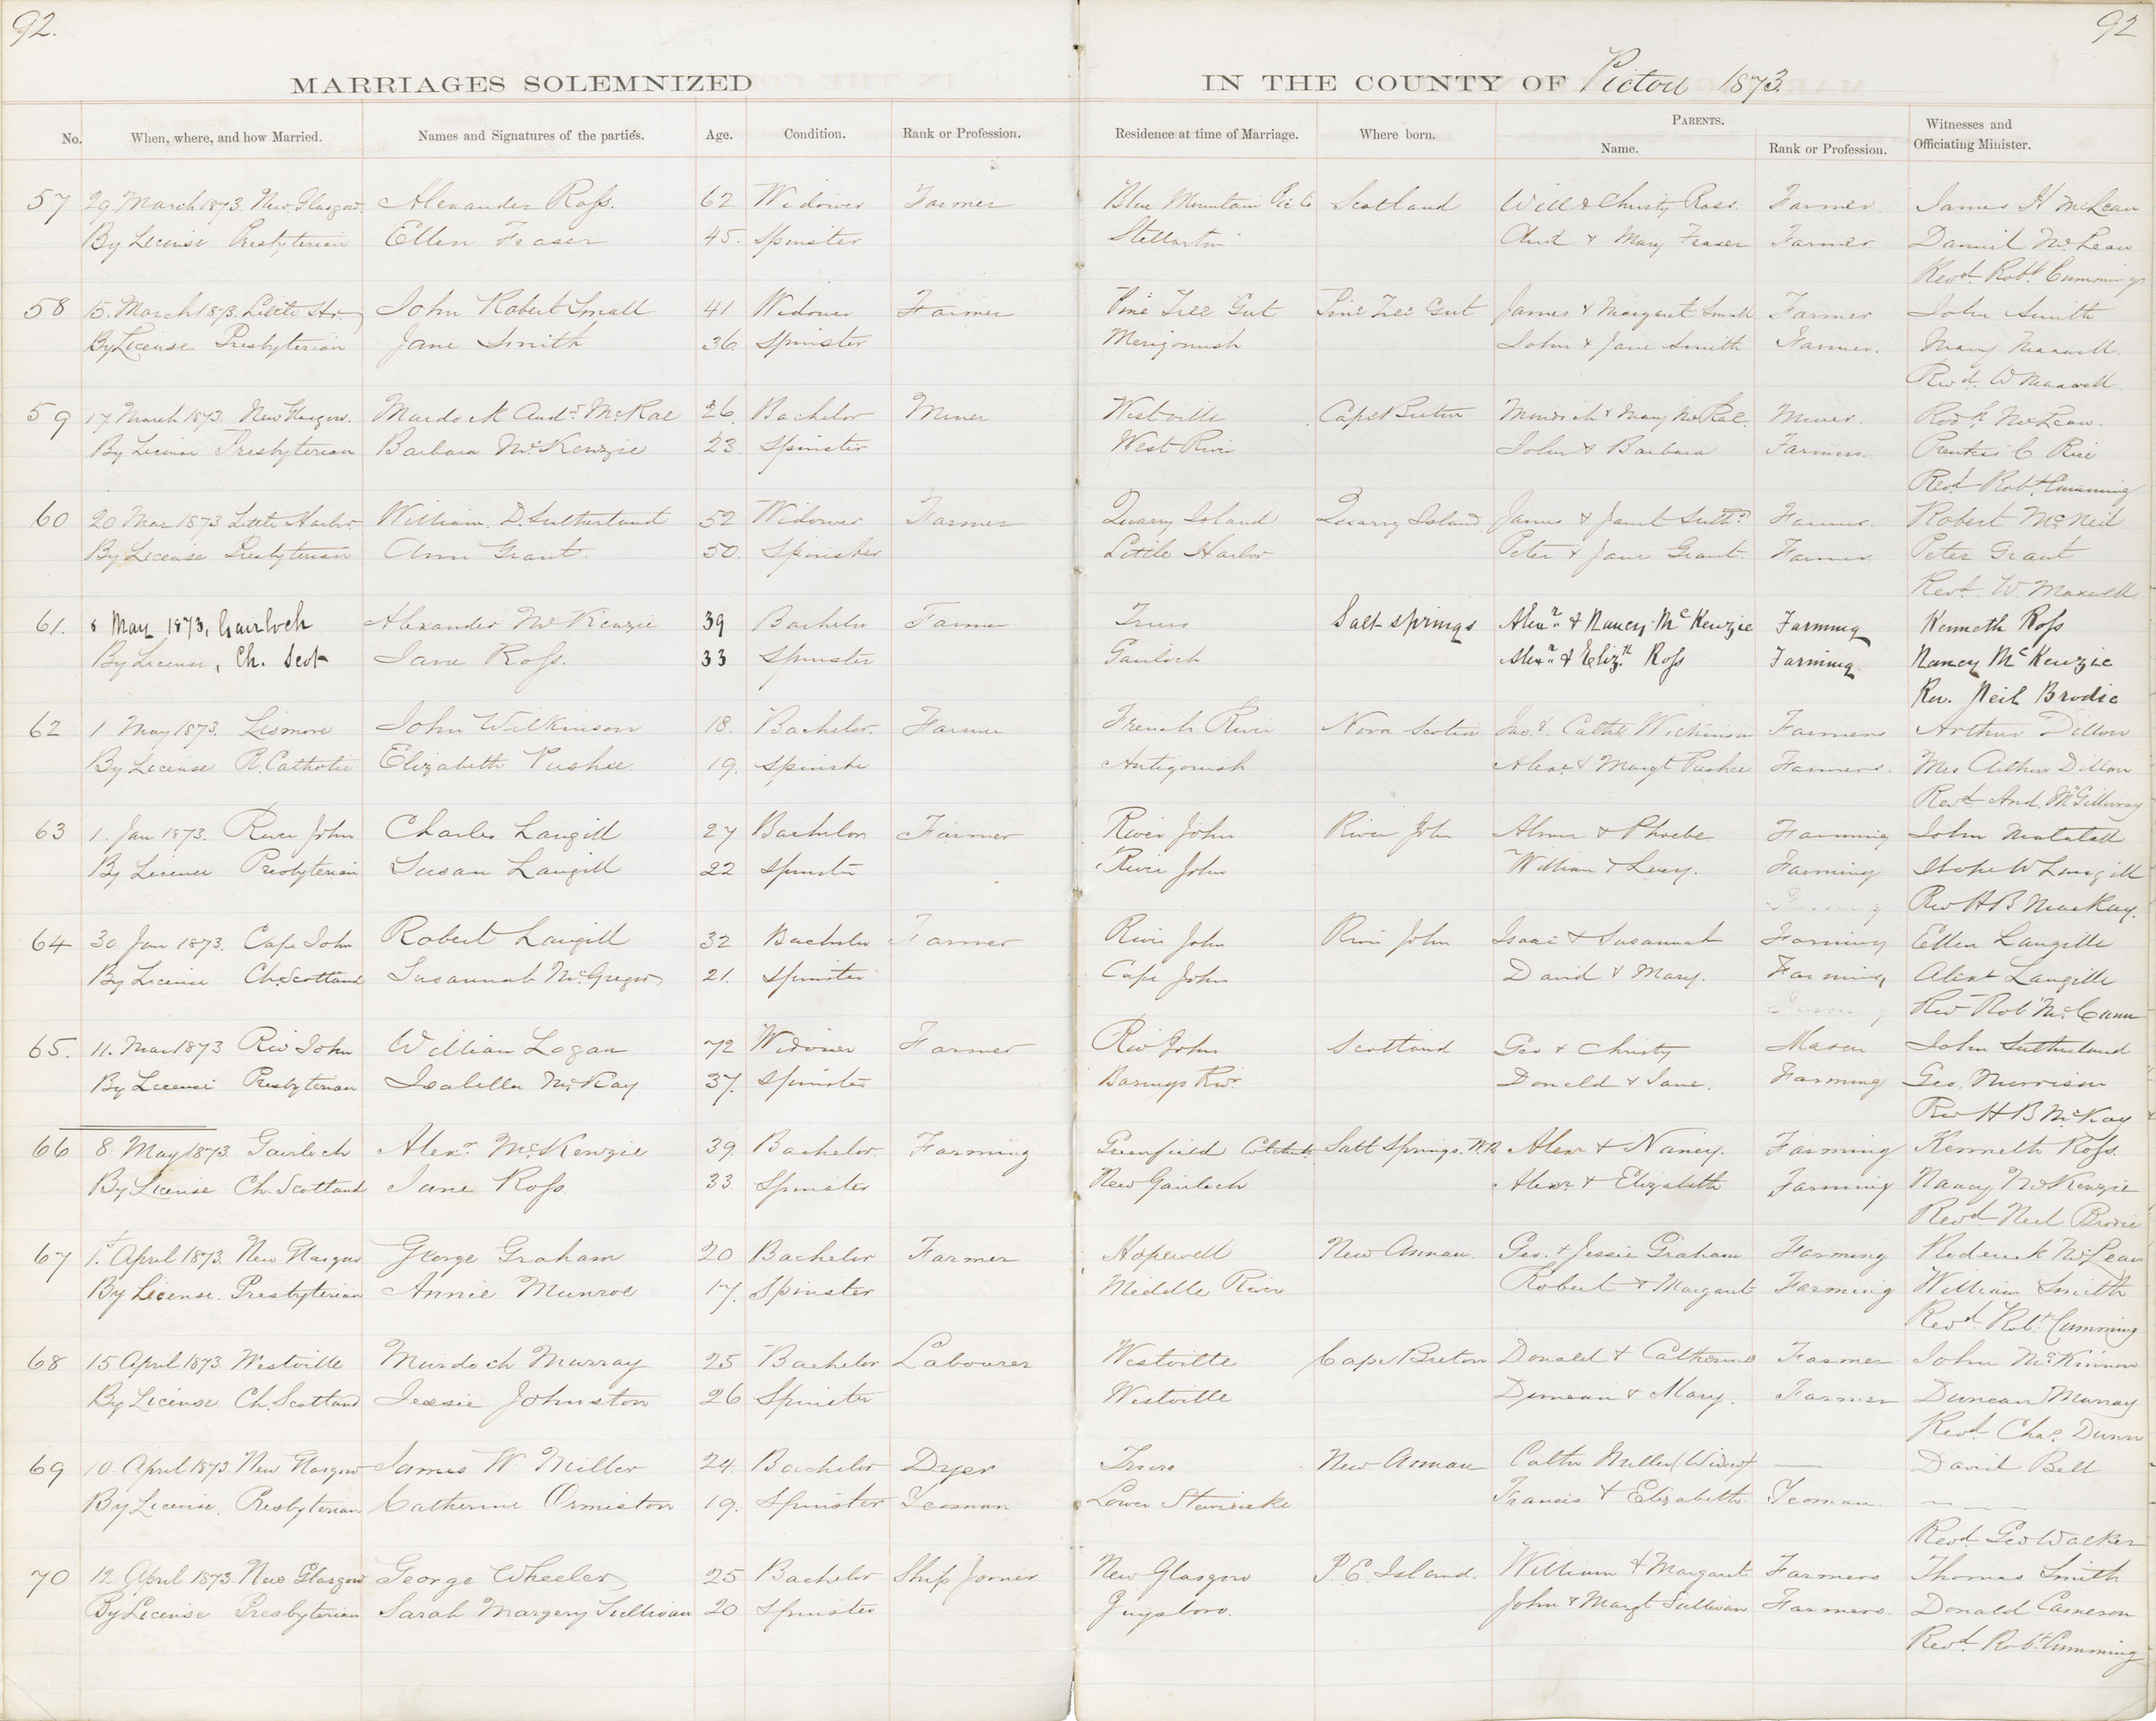 92.
92
MARRIAGES SOLEMNIZED
IN THE COUNTY OF Pictou 1873.
No. When, where, and how Married. Names and Signatures of the parties. Age. Condition. Rank or Profession. Residence at time of Marriage. Where born. PARENTS. Name. Rank or Profession. Witnesses and Officiating Minister.
57 29 March 1873. New Glasgow. Alexander Ross. 62 Widower Farmer Blue Mountain Pic Co Scotland Will & Christy Ross. Farmer James H McLean
By License Presbyterian Ellen Fraser 45. Spinster Stellarton & Mary Fraser Farmer Daniel McLean
Revd. Robt. Cummings
58 15. March 1873. Little Hr. John Robert Small 41 Widower Farmer Pine Tree Gut Pine Tree Gut James & Margaret Small Farmer John Smith
By License Presbyterian Jane Smith 36. Spinster Merigomish John & Jane Smith Farmer. Mary Maxwell.
Revd. W Maxwell.
59 17 March 1873. New Glasgow. Murdock Andw. McRae 26. Bachelor Miner Westville Cape Breton Murdoch & Mary McRae. Miner. McLean.
By License Presbyterian Barbara McKenzie 23 Spinster West River John & Barbara Farmers. Prentiss C Rice
Revd. Robt. Cumming
60 20 Mar 1873 Little Harbor William. D. Sutherland 52 Widower Farmer Quarry Island Quarry Island James & Janet Suthd. Farmer. Robert McNeil
By License Presbyterian Ann Grant. 50. Spinster Little Harbor Peter & Jane Grant. Farmer Peter Grant
Revd. W. Maxwell
61. 8 May 1873, Gairloch Alexander McKenzie 39 Bachelor Farmer Truro Salt springs Alexr. & Nancy McKenzie Farming Kenneth Ross
By License, Ch. Scot Jane Ross. 33 Spinster Gairloch Alexr. & Elizth. Ross Farming Nancy McKenzie
Rev. Neil Brodie
62 1 May 1873. Lismore John Wilkinson 18. Bachelor. Farmer French River Nova Scotia Jas. & Cathe Wilkinson Farmers Arthur Dillon
By License R. Catholic Elizabeth Pushee 19. Spinster Antigonish Alexr. & Margt Pushee Farmers. Mrs Arthur Dillon
Revd. And. McGillivray
63 1. Jan 1873. River John Charles Langill 27 Bachelor Farmer River John River John & Phoebe Farming John Matatall
By License Presbyterian Susan Langill 22 Spinster River John William & Lucy. Farming W Langill
Rev H B MacKay.
64 30 Jan 1873. Cape John Robert Langill 32 Bachelor Farmer River John River John Isaac & Susannah Farming Ellen Langille
By License Ch. Scotland Susannah McGregor 21. Spinster Cape John David & Mary. Farming Alexr Langille
Rev Rob McCunn
65. 11. Mar 1873 Riv John William Logan 72 Widower Farmer Riv John Scotland Geo & Christy Mason John Sutherland
By License Presbyterian Isabella McKay 37. Spinster Barneys Rivr. Donald & Jane. Farming Geo. Murrison
Rev H B McKay
66 8. May 1873. Gairloch Alexr. McKenzie 39. Bachelor. Farming Greenfield Colchstr. Salt Springs. W.R Alexr & Nancy. Farming Kenneth Ross.
By License Ch. Scotland Jane Ross. 33 Spinster New Gairloch Alexr. & Elizabeth Farming Nancy McKenzie
Revd. Neil Brodie
67 1st. April 1873. New Glasgow George Graham 20 Bachelor Farmer Hopewell New Annan. Geo. & Jessie Graham Farming Roderick McLean
By License. Presbyterian Annie Munroe 17. Spinster Middle River Robert & Margaret Farming William Smith
Revd. Robt. Cumming
68 15 April 1873. Westville Murdoch Murray 25 Bachelor Labourer Westville Cape Breton Donald & Catherine Farmer John McKinnon
By License Ch. Scotland Jessie Johnston 26 Spinster Westville Duncan & Mary. Farmer Duncan Murray
Revd. Chas. Dunn
69 10. April 1873. New Glasgow James W Miller 24. Bachelor Dyer Truro New Annan Cathn Miller (Widow) — David Bell
By License. Presbyterian Catherine Ormiston 19. Spinster Yeoman Lower Stewiacke Francis & Elizabeth. Yeoman. — — —
Revd. Geo Walker
70 12. April 1873. New Glasgow George Wheeler 25 Bachelor Ship Joiner New Glasgow P. E. Island. William & Margaret Farmers Thomas Smith
By License Presbyterian Sarah Margery Sullivan 20 Spinster Guysboro. John & Margt Sullivan Farmers. Donald Cameron
Revd. Robt. Cumming